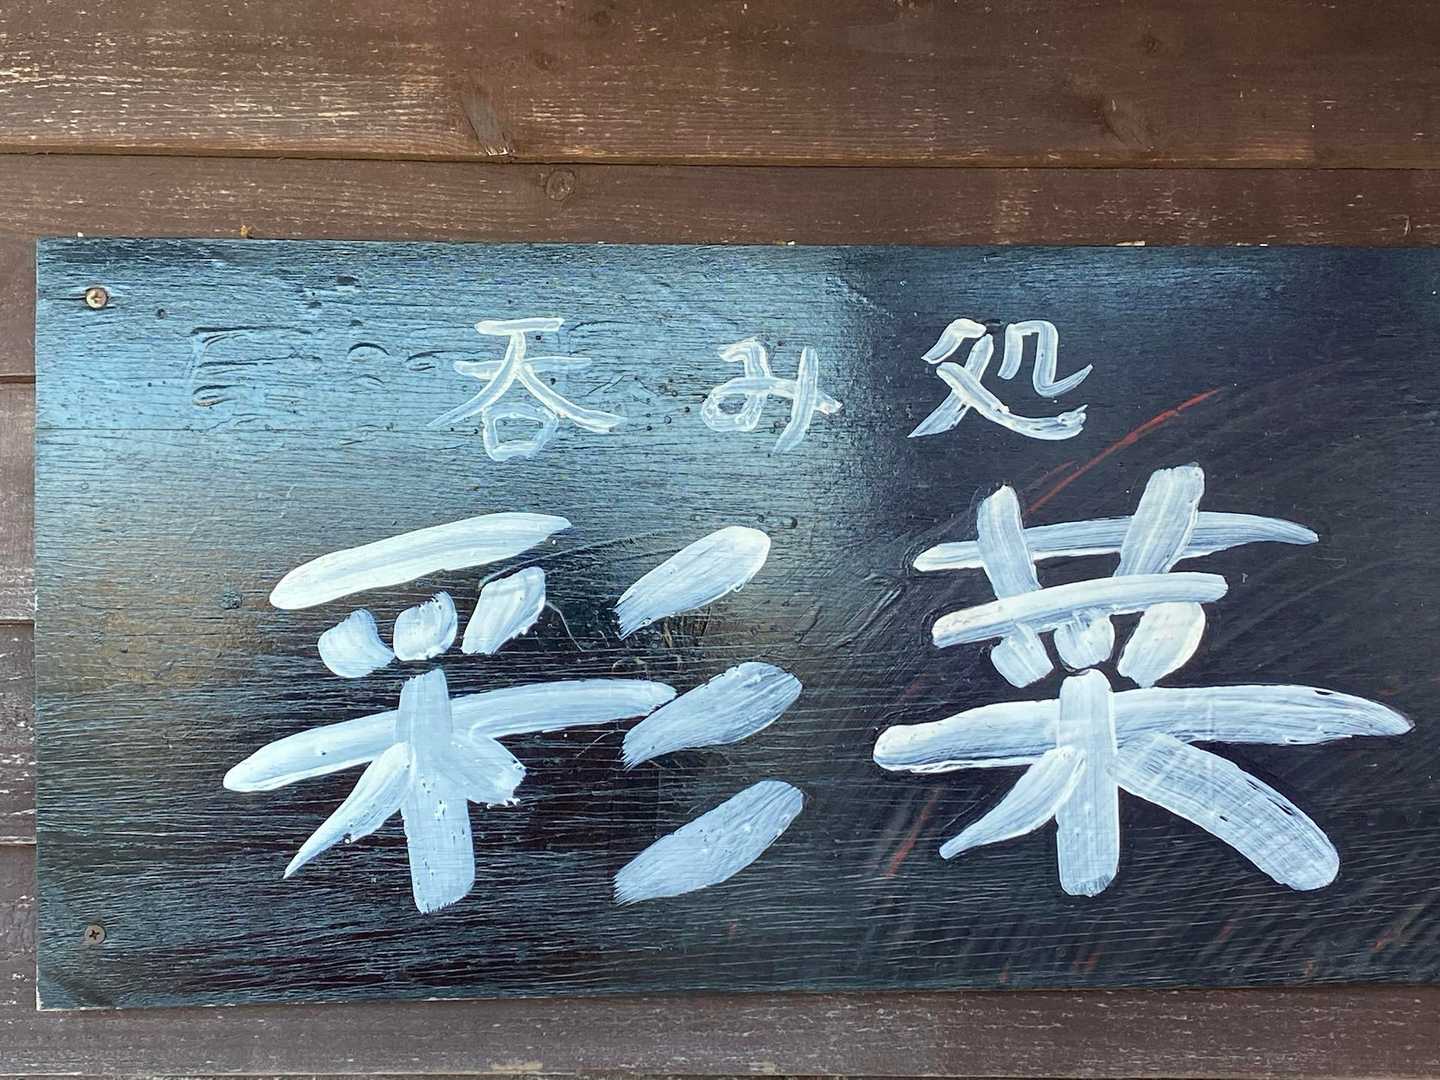 呑み処
彩菜